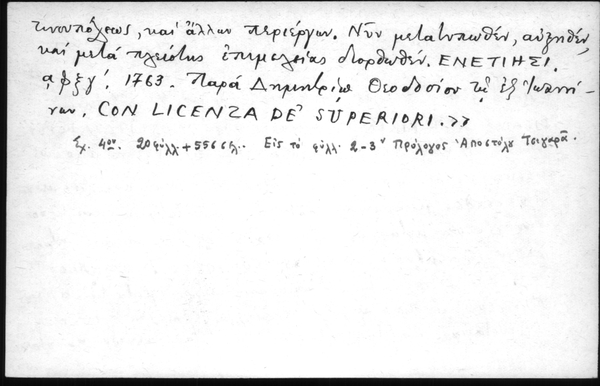 τινουπόλεως, καὶ ἄλλων περιέργων. Νῦν μετατυπωθέν, αὐξηθέν,
καὶ μετὰ πλείστης ἐπιμελείας διορθωθέν. ΕΝΕΤΙΗΣΙ.
͵αψξγ΄. 1763. Παρὰ Δημητρίῳ Θεοδοσίου τῷ ἐξ Ἰωαννί-
νων. CON LICENZA DE' SUPERIORI. >>
Σχ. 4ον. 20 φύλλ + 556 σελ.. Εἰς τὸ φύλλ. 2-3ν Πρόλογος Ἀποστόλου Τσιγαρᾶ.